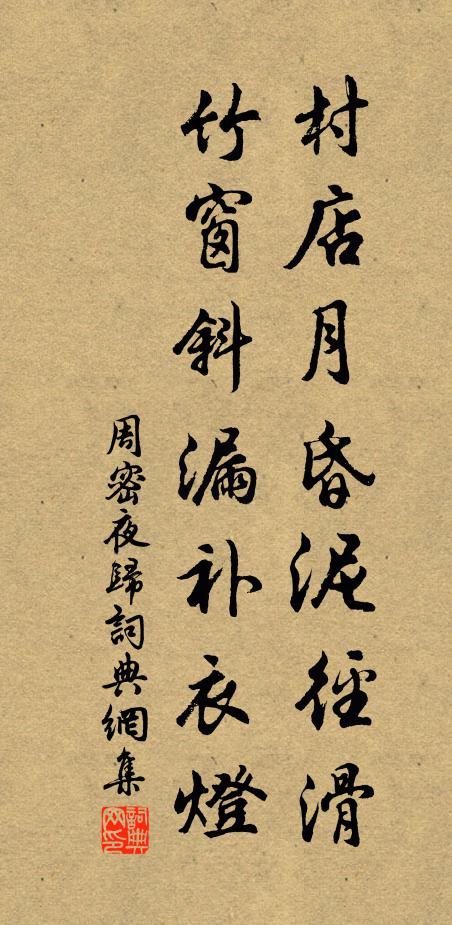 村店月昏泥徑滑
竹窗斜漏补衣燈
周密夜歸詞典網集
詞典网印